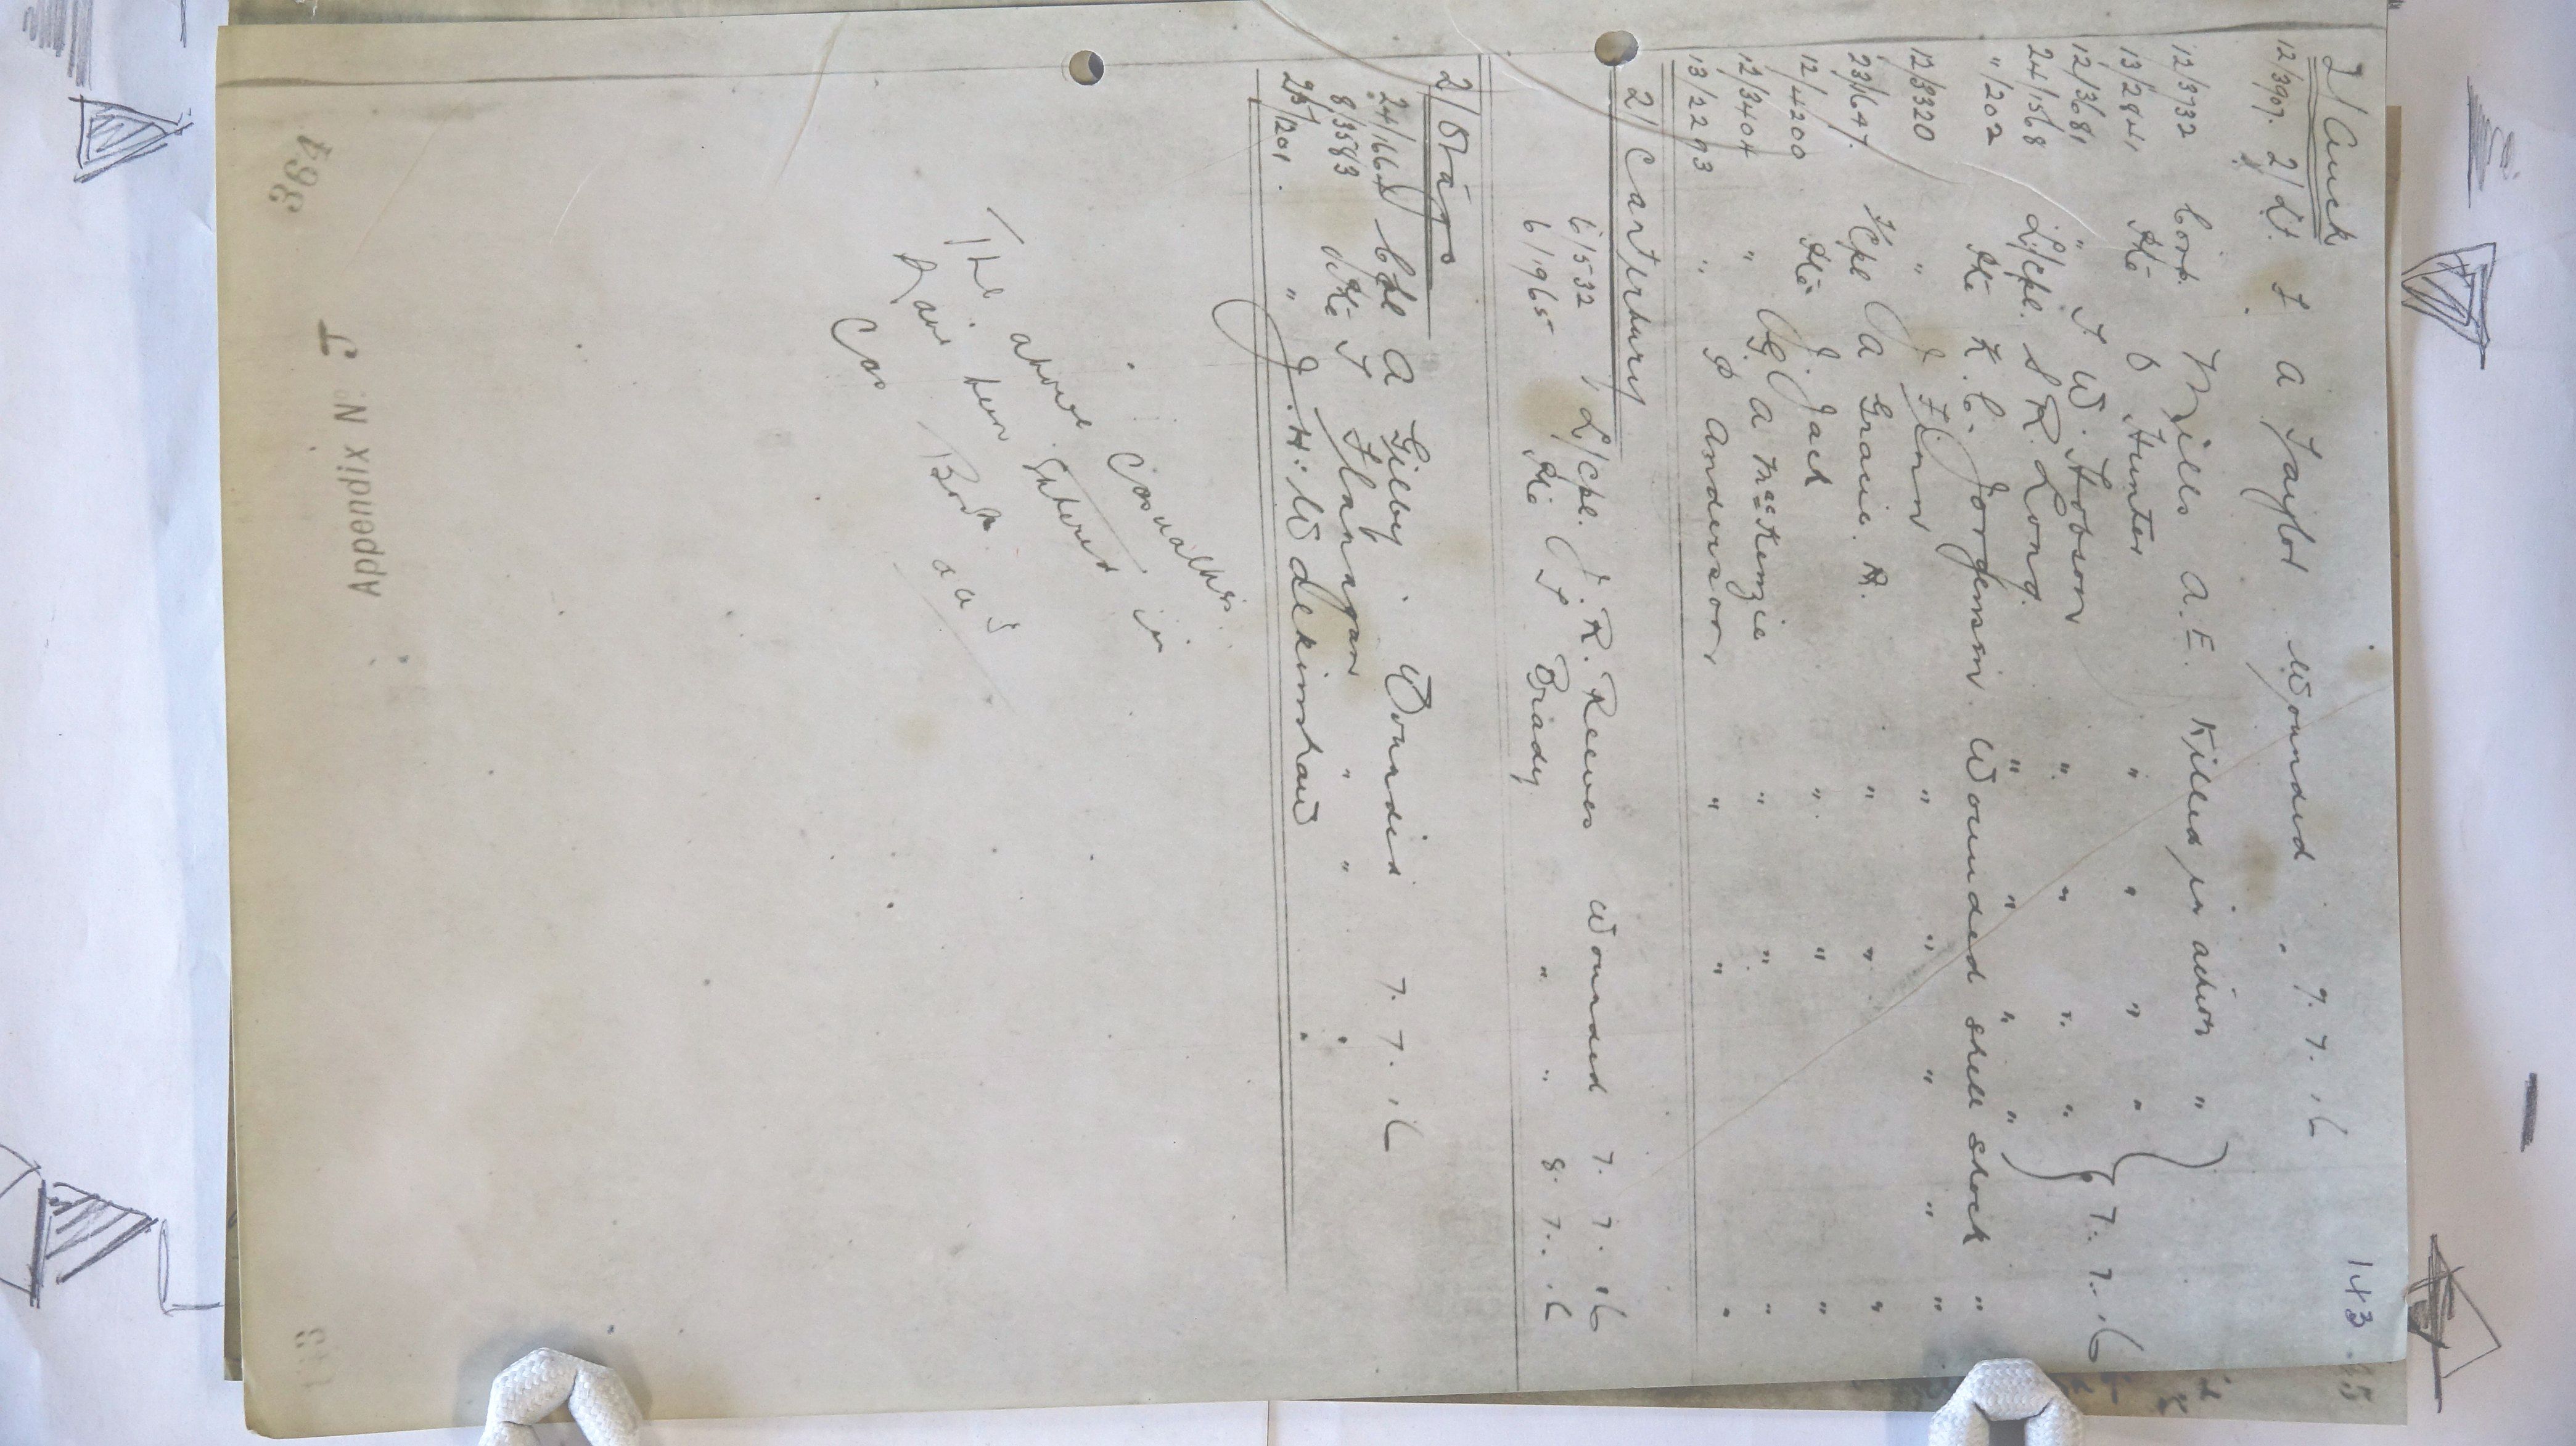 143
2/Auck
12/3907. 2/Lt. F A Taylor Wounded " 7. 7. 16
12/3732 Corp. Mills A.E. Killed in action "
13/2841 Pte O Hunter " " " "
12/3681 " F W. Hobson " " " " 7. 7. 16
24/1568 L/Cpl. S R. Long. " " " "
"/202 Pte K. C. Jorgensen Wounded shell shock "
12/3320 " J Flinn " " " " "
23/1647. L/Cpl A Graue. A. " " "
12/4200 Pte J. Jack " " "
12/3404 " G. A McKenzie " " "
13/2293 " P Anderson " " "
2/Canterbury
6/1532 L/Cpl. J. R. Reeves Wounded 7. 7. 16
6/1965 Pte T Brady " " 8. 7. 16
2/Otago
24/1664 Cpl A Gilby Wounded 7. 7. 16
8/3583 Pte T Flannagan " " "
25/1201. " J. H. W
The above Casualties
have been entered in
Cas Book
Appendix No. J
364